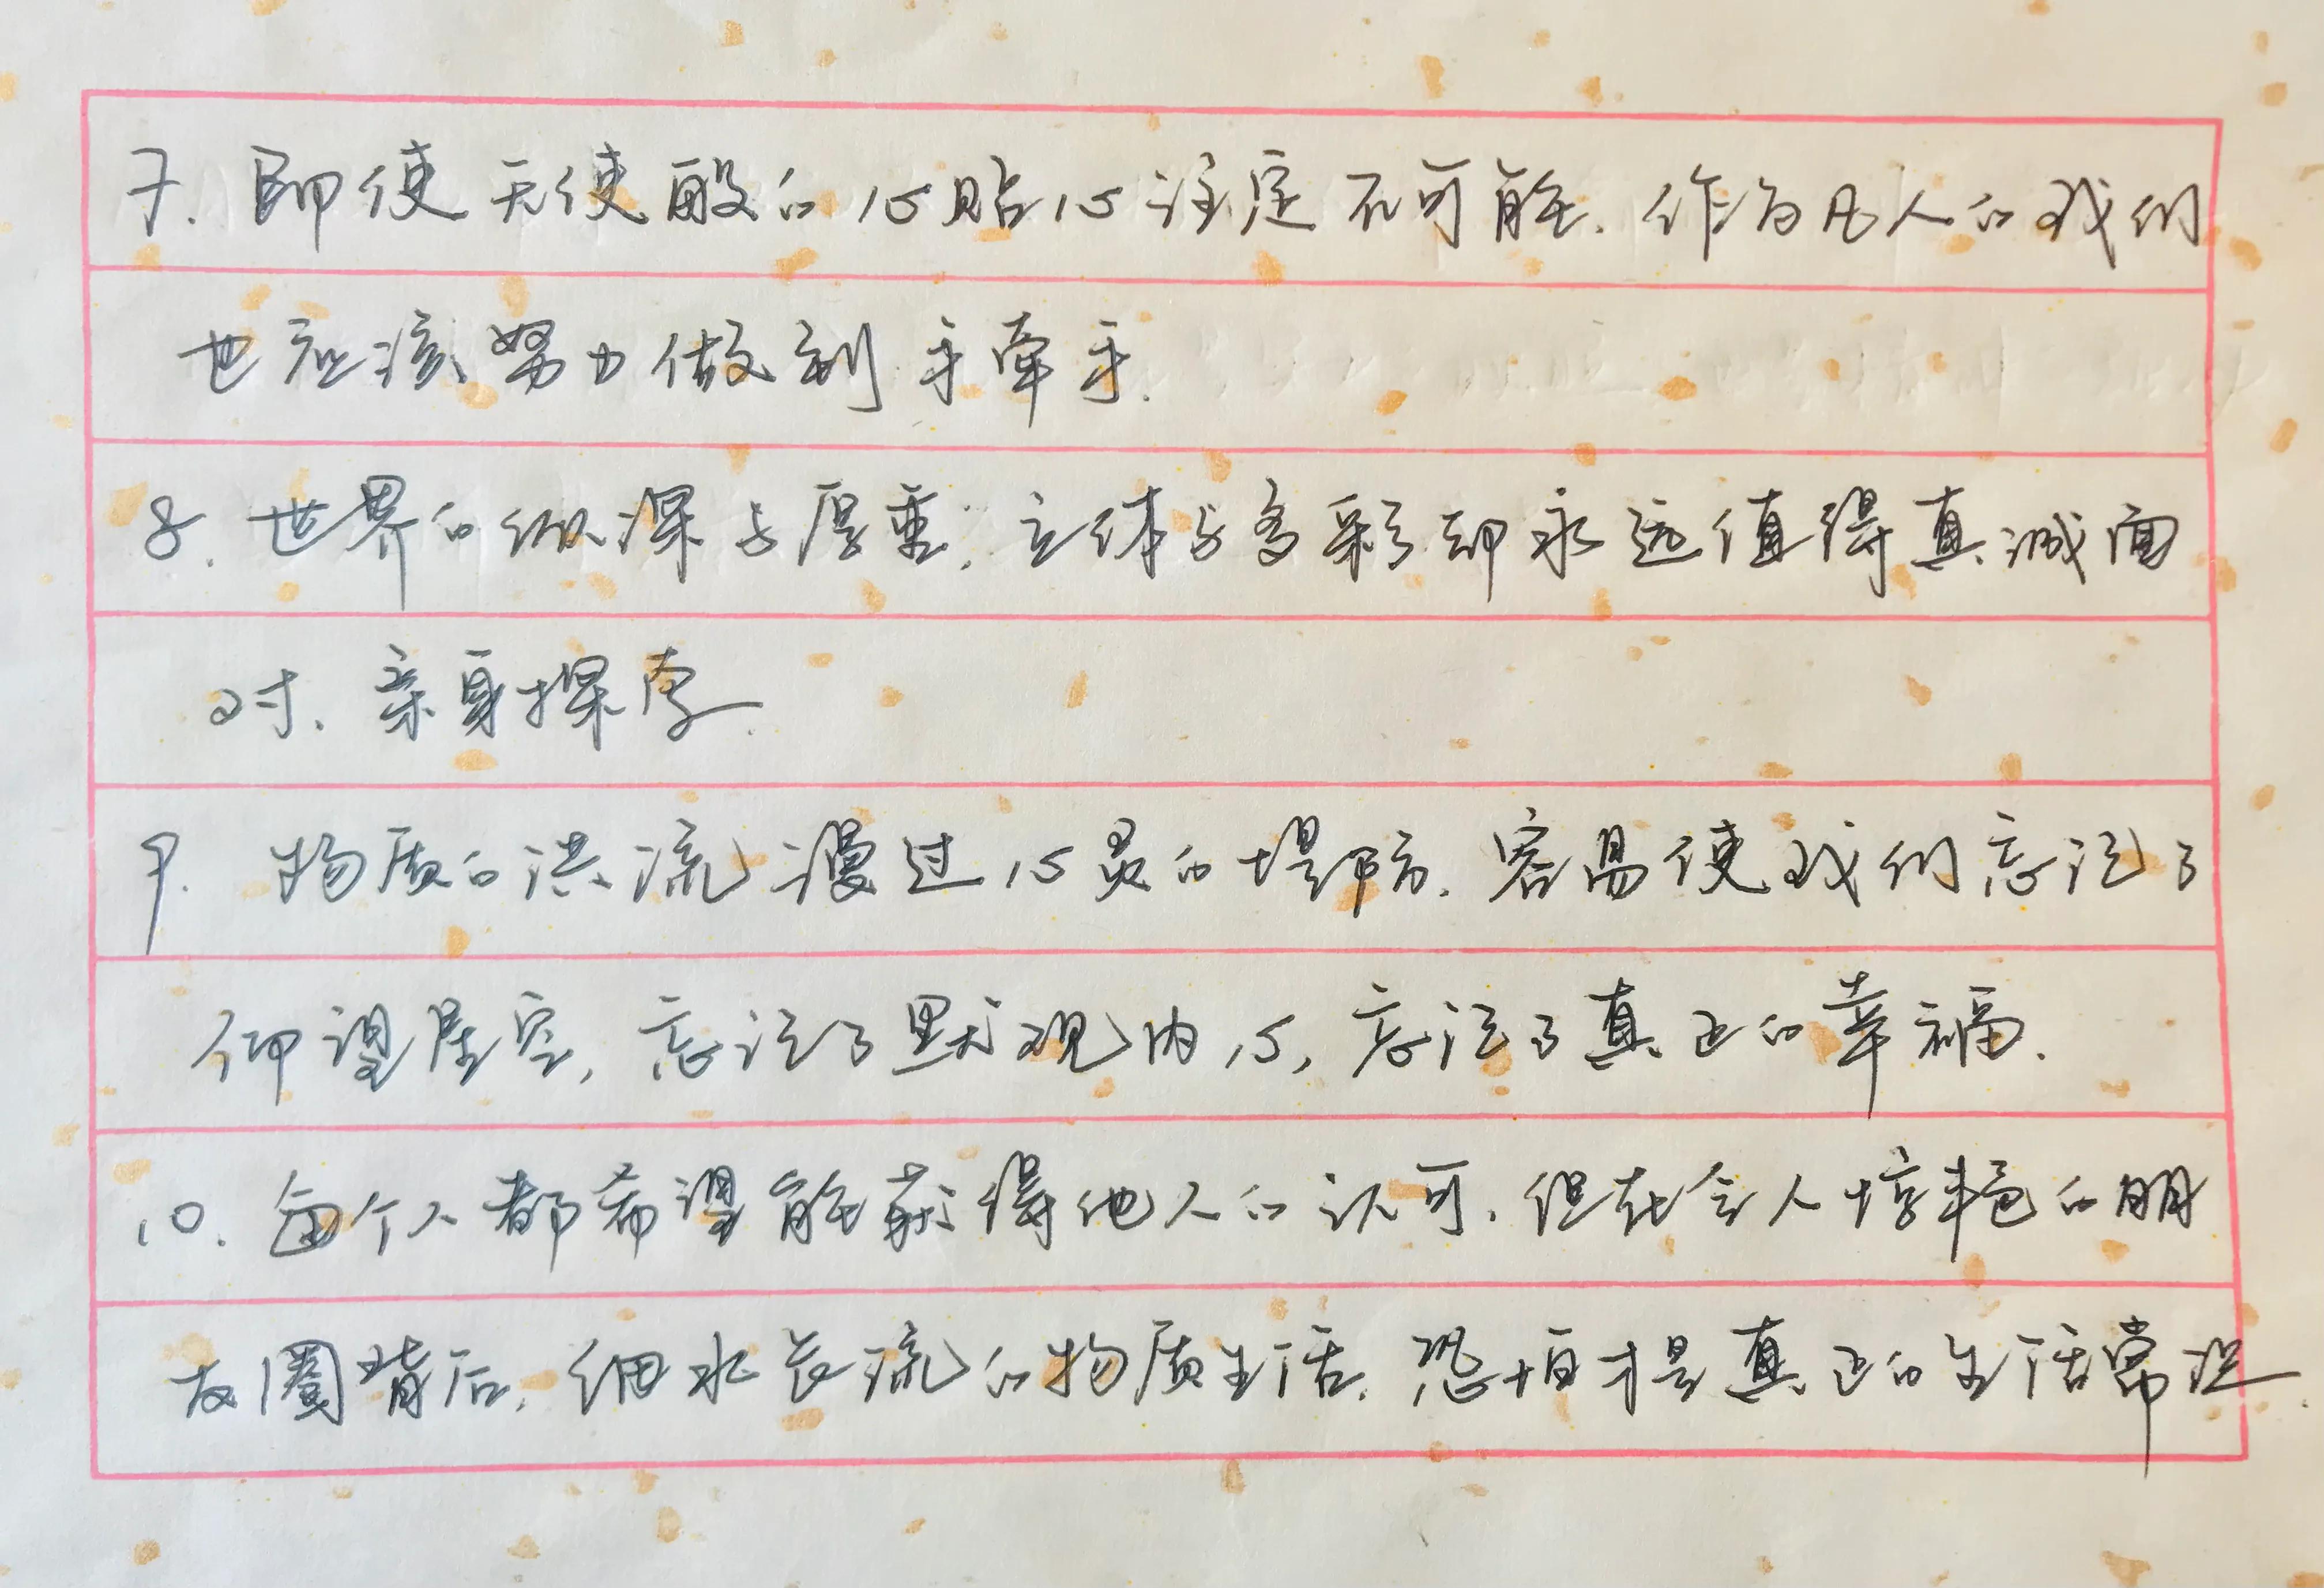 7. 即使天使般的心贴心注定不可能. 作为凡人的我们
也应该努力做到手牵手.
8. 世界的纵深与厚重, 立体与多彩却永远值得真诚面
对、亲身探索.
9. 物质的洪流漫过心灵的堤防. 容易使我们忘记了
仰望星空, 忘记了默观内心, 忘记了真正的幸福.
10. 每个人都希望能获得他人的认可. 但在令人惊艳的朋
友圈背后, 细水长流的物质生活. 恐怕才是真正的生活常态.